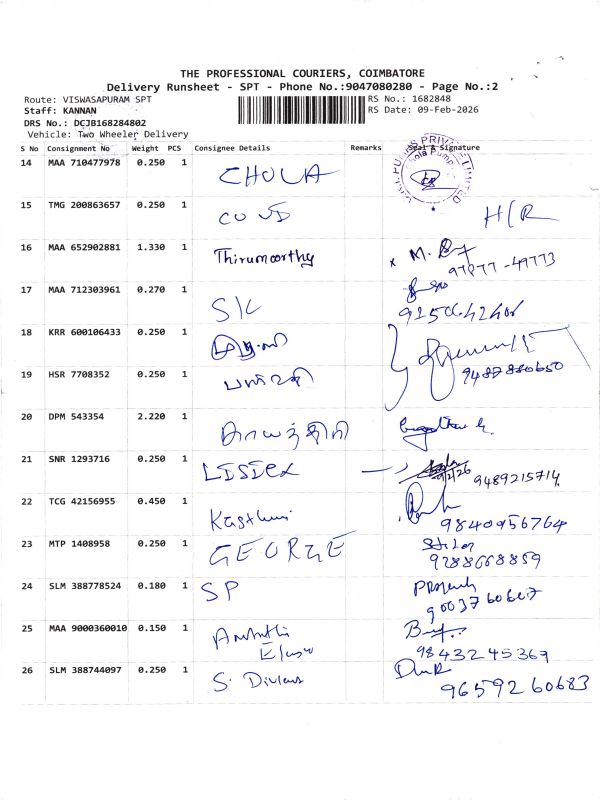 THE PROFESSIONAL COURIERS, COIMBATORE
Delivery Runsheet - SPT - Phone No.:9047080280 - Page No.:2
Route: VISWASAPURAM SPT
RS No.: 1682848
Staff: KANNAN
RS Date: 09-Feb-2026
DRS No.: DCJB168284802
Vehicle: Two Wheeler Delivery
S No Consignment No Weight PCS Consignee Details Remarks Seal & Signature
14 MAA 710477978 0.250 1 CHOLA
15 TMG 200863657 0.250 1 H/R
16 MAA 652902881 1.330 1 Thirumoorthy
97877-49773
17 MAA 712303961 0.270 1
18 KRR 600106433 0.250 1
19 HSR 7708352 0.250 1
20 DPM 543354 2.220 1 காயத்திரி
21 SNR 1293716 0.250 1 9489215714
22 TCG 42156955 0.450 1
9840956764
23 MTP 1408958 0.250 1 GEORGE
9288668859
24 SLM 388778524 0.180 1 SP
25 MAA 9000360010 0.150 1
9843245369
26 SLM 388744097 0.250 1
9659260683